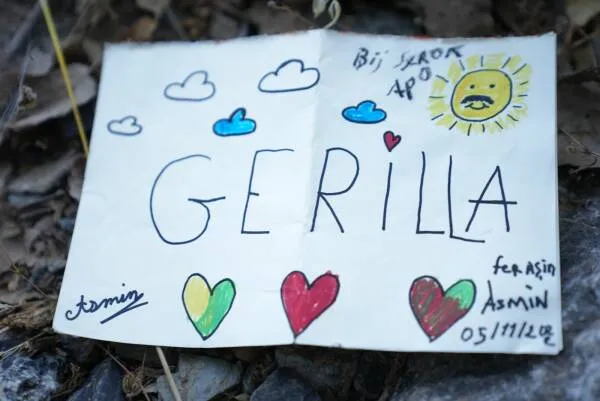 Bij SEROK
APO
GERiLLA
Asmin
ferAşin
AsMiN